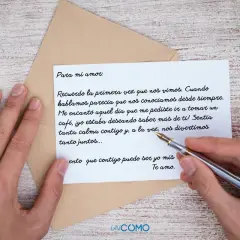 Para mi amor:
Recuerdo la primera vez que nos vimos. Cuando
hablamos parecia que nos conociamos desde siempre.
Me encanto aquel dia que me pediste ir a tomar un
café, yo estaba deseando saber mas de ti! Sentia
tanta calma contigo y, a la vez, nos divertimos
tanto juntos...
ento que contigo puedo ser yo mis
Te amo.
unCOMO